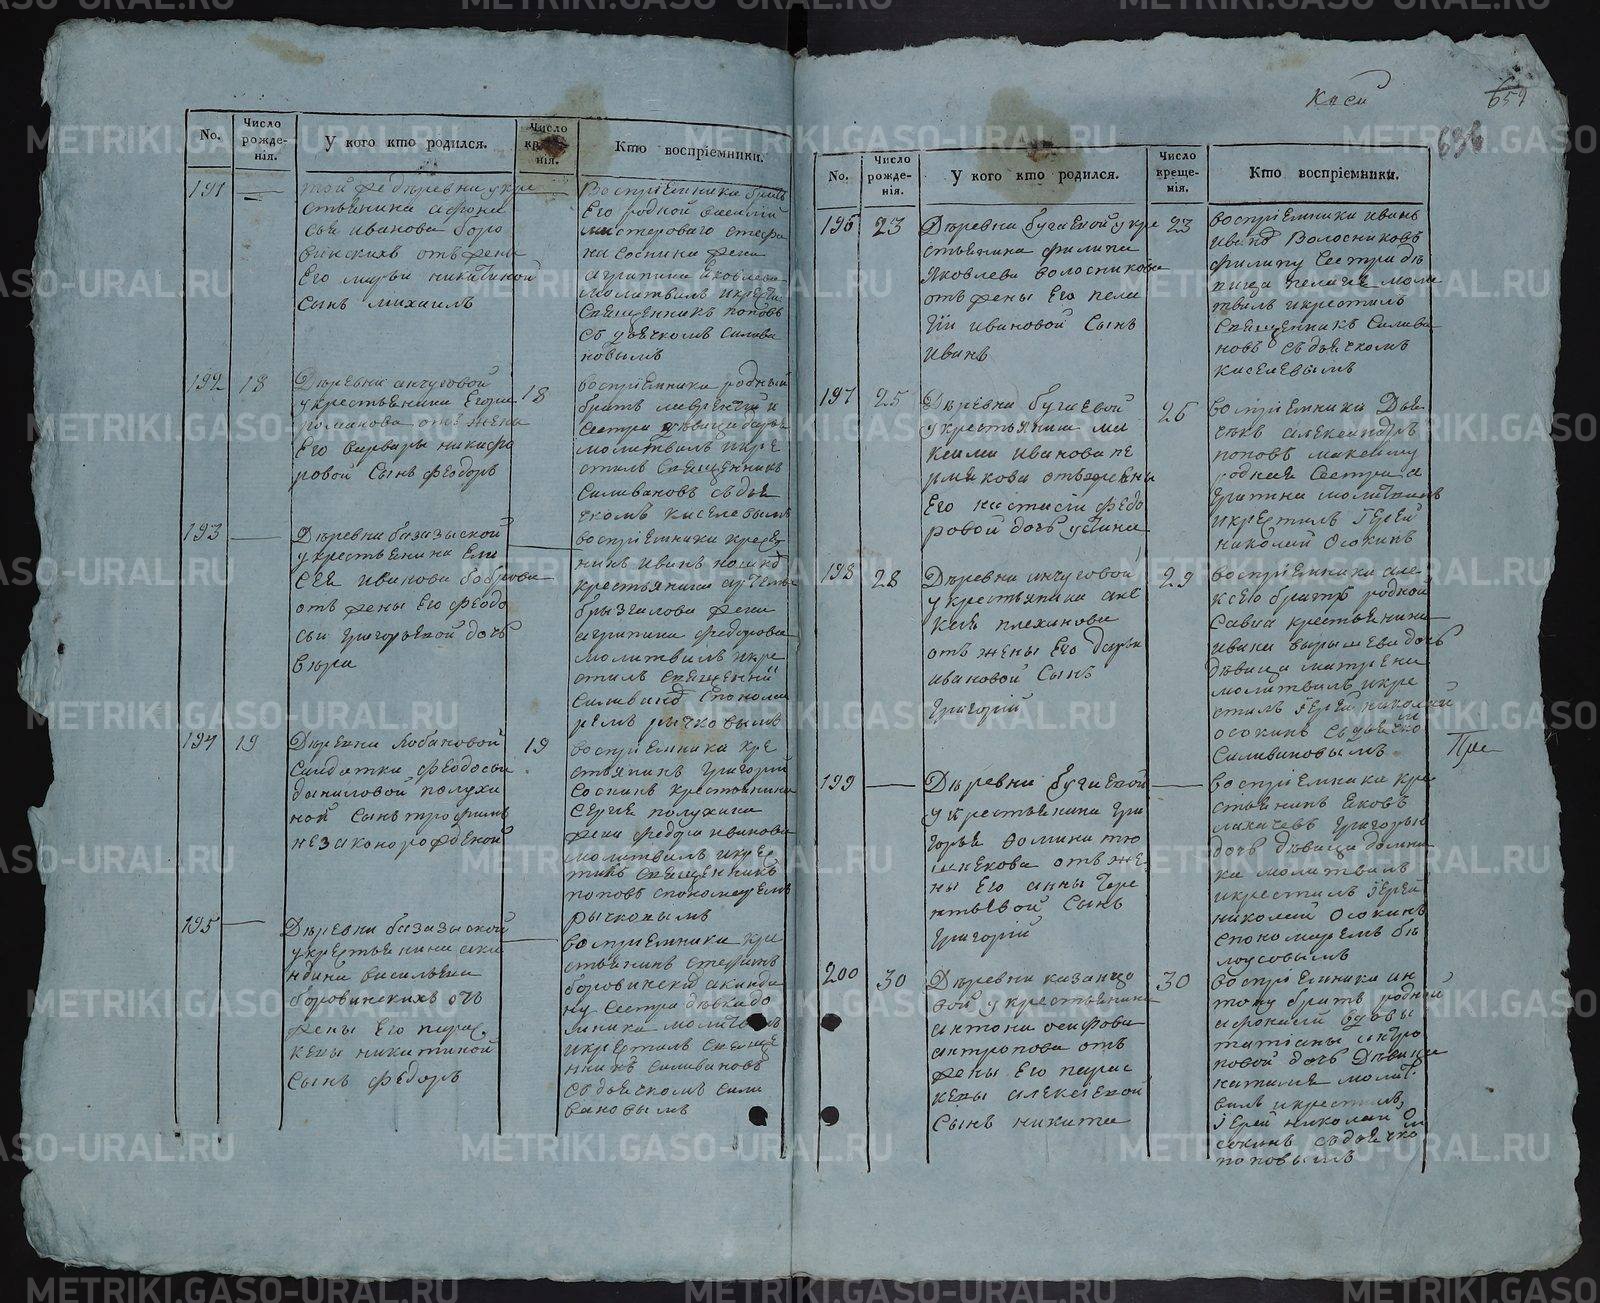 No.
Число рожде-нія.
У кого кто родился.
Число
нія.
Кто воспріемники.
191
той же деревни у кре
стьянина афона
сья иванова боро
винскихъ отъ жены
Его марьи никитиной
сынъ михаилъ
воспріемники братъ
Его родной василій
мастероваго стефа
на соснина жена
агрипина яковлева
молитвилъ и крести
священникъ поповъ
съ дьячкомъ силива
новымъ
192
18
Деревни анчуговой
у крестьянина Егора
романова отъ жены
Его варвары никифо
ровой сынъ феодоръ
18
воспріемники родный
братъ лаврентій и
сестра девица дарья
молитвилъ и кре
стилъ священникъ
силивановъ съ дья
чкомъ киселевымъ
193
Деревни базазыской
у крестьянина Ели
сея иванова боброва
отъ жены Его феодо
сьи григорьевой дочь
воспріемники крест
нинъ иванъ
крестьянина артемья
брызгалова жена
агрипина федорова
молитвилъ и кре
стилъ священни
силиванов с понома
ремъ рычковымъ
194
19
Деревни лобановой
салдатки феодосьи
даниловой полухи
ной сынъ трофимъ
незаконорожденой
19
воспріемника кре
стьянинъ григорий
соснинъ крестьянина
сергия полухина
жена федора иванова
молитвилъ и крес
тилъ священникъ
поповъ с пономаремъ
рычковымъ
195
Деревни базазыской
у крестьянина аки
ндина васильева
боровинскихъ отъ
жены Его парас
кевы никитиной
сынъ федоръ
воспріемники кре
стьянинъ стефанъ
боровинской акинди
ну сестра девка до
мника молитвилъ
и крестилъ свяще
нникъ силивановъ
съ дьячкомъ сили
вановымъ
659
636
No.
Число рожде-нія.
У кого кто родился.
Число креще-мія.
Кто воспріемники.
196
23
Деревни бугаевой у кре
стьянина филипа
Яковлева волосникова
отъ жены Его пела
гіи ивановой сынъ
иванъ
23
воспріемники иванъ
иванов волосниковъ
филипу сестра де
вица пелагея моли
твилъ и крестилъ
священникъ силива
новъ съ дьячкомъ
киселевымъ
197
25
Деревни бугаевой
у крестьянина ма
ксима иванова пе
рмякова отъ жены
Его настасіи федо
ровой дочь устина
26
воспріемника дья
чекъ александръ
поповъ максиму
родная сестра а
грипина молитвилъ
и крестилъ іерей
николай осокинъ
198
28
Деревни анчуговой
у крестьянина але
ксея плеханова
отъ жены Его дарьи
ивановой сынъ
григорій
29
воспріемника але
ксею братъ родной
савва крестьянина
ивана варылева дочь
девица матрена
молитвилъ и кре
стилъ іерей николай
осокинъ съ дьячко
силивановымъ
199
Деревни бугаевой
у крестьянина гри
горья фомина тю
шнекова отъ же
ны Его анны тере
нтьевой сынъ
григорій
воспріемника кре
стьянинъ яковъ
лихачевъ григорью
дочь девица домни
ка молитвилъ
и крестилъ іерей
николай осокинъ
с пономаремъ бе
лоусовымъ
200
30
Деревни казанцо
вой у крестьянина
антона осифова
антропова отъ
жены Его парас
кевы алексеевой
сынъ никита
30
воспріемника ан
тону братъ родной
афонасій вдовы
татианы антро
повой дочь девица
наталья молит
вилъ и крестилъ
іерей николай о
сокинъ съ дьячко
поповымъ